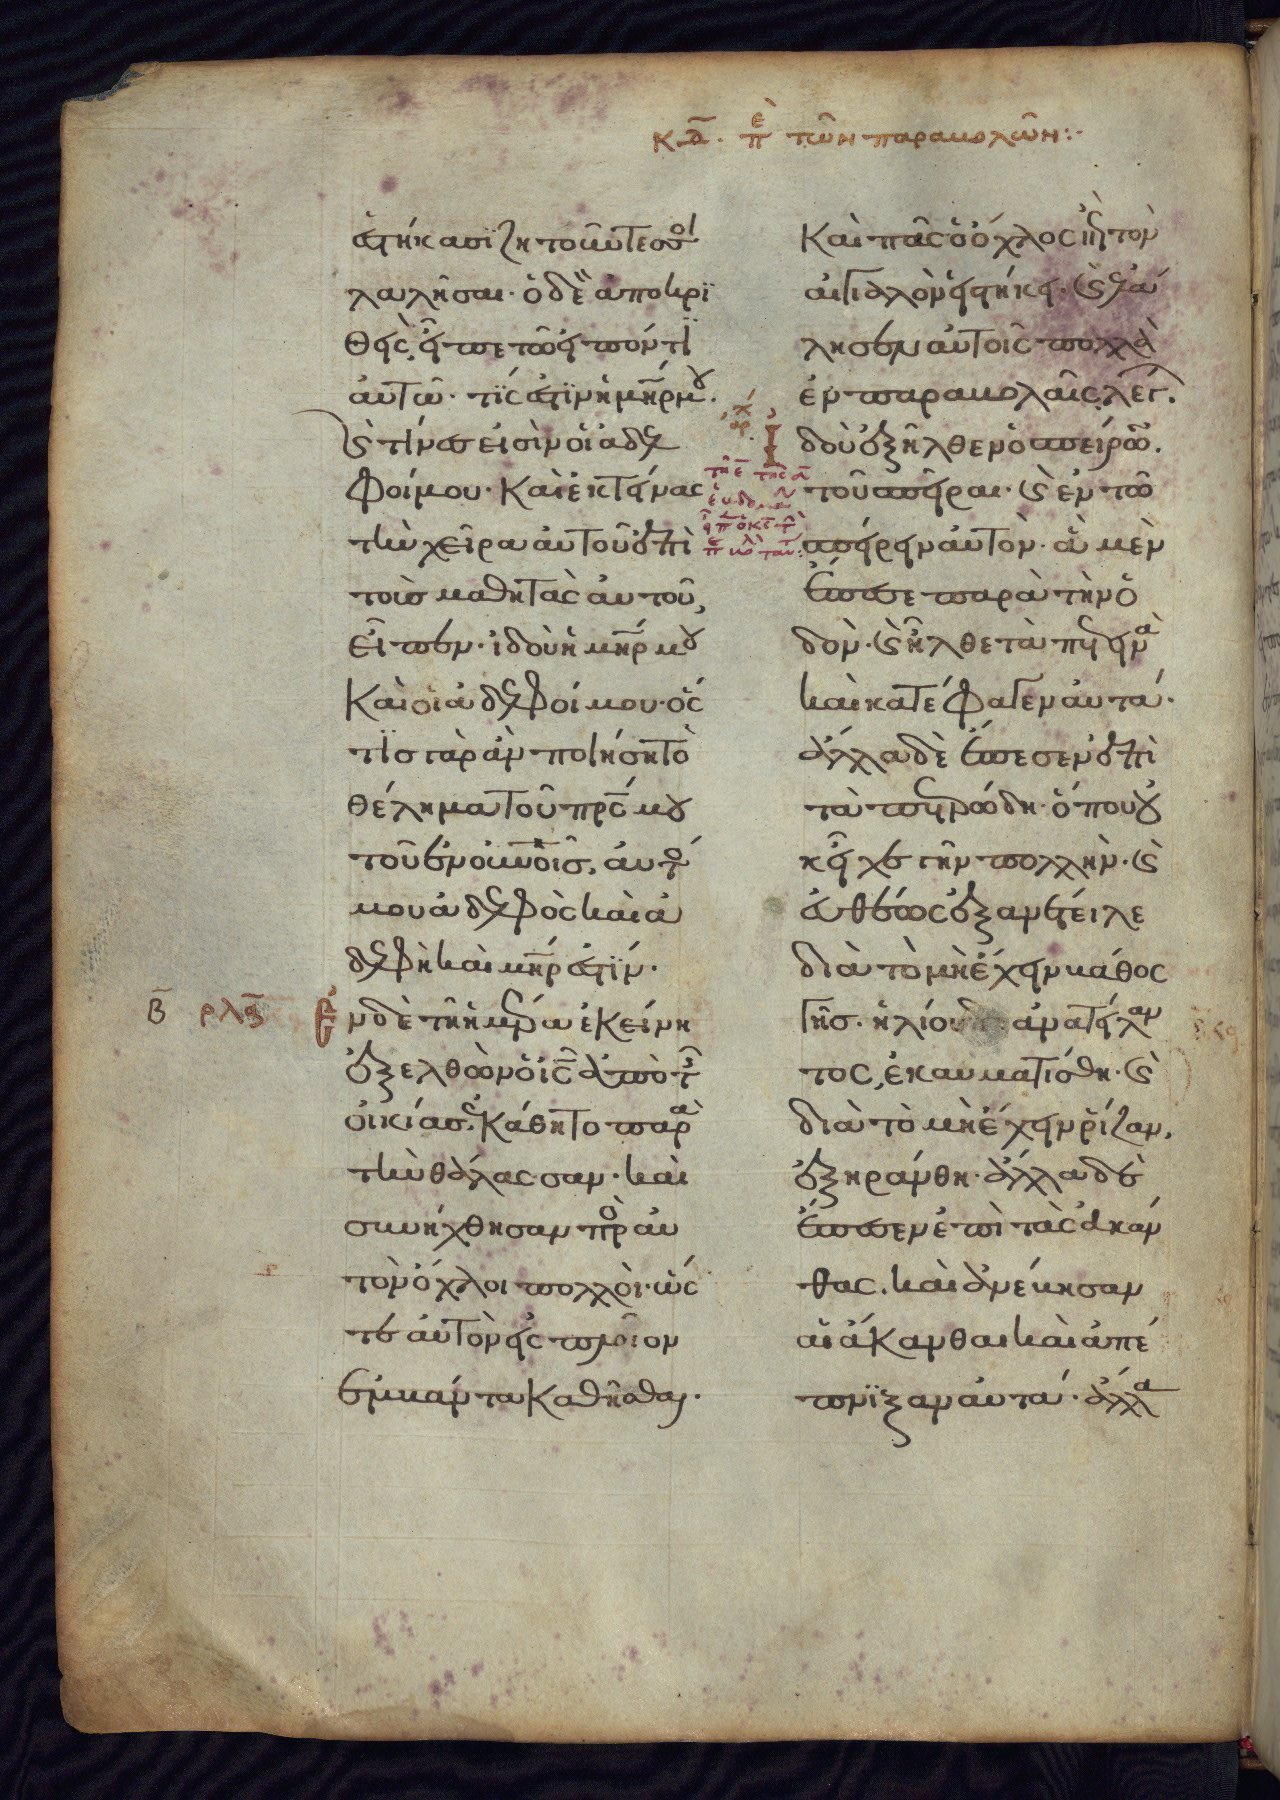 κδ. πε τῶν παραβολῶν:
ἑστήκασϊ ζητοῦντές σοι
λαλῆσαι· ὁ δὲ ἀποκρϊ
θεὶς, εἶπε τῶ εἰπόντϊ
αὐτῶ· τΐς ἐστϊν ἡ μηρ μου·
καὶ τίνες εἰσὶν οἱ ἀδελ
φοί μου· Καὶ ἐκτείνας
τὴν χεῖρα αὐτοῦ ἐπὶ
τοὺς μαθητὰς αὐτοῦ,
εἶπεν· ἰδοὺ ἡ μηρ μου
Καὶ οἱ ἀδελφοί μου· ὅσ
τϊς γὰρ ἂν ποιήση τὸ
θέλημα τοῦ πρς μου
τοῦ ἐν οὐνοῖς, αὐτός
μου ἀδελφὸς καὶ ἀ
δελφὴ καὶ μηρ ἐστϊν·
Β ρλϛ
Ἐν δὲ τῆ ἡμέρα ἐκείνη
ἐξελθὼν ὁ ις ἀπὸ τῆς
οἰκίας, ἐκάθητο παρὰ
τὴν θάλασσαν· καὶ
συνήχθησαν πρὸς αὐ
τὸν ὄχλοι πολλοὶ· ὥσ
τε αὐτὸν εἰς πλοῖον
ἐμβάντα καθῆσθαι·
Καὶ πᾶς ὁ ὄχλος ἐπὶ τὸν
αἰγιαλὸν εἱστήκει· καὶ ἐλά
λησεν αὐτοῖς πολλὰ
ἐν παραβολαῖς, λέγων·
Ἰδοὺ ἐξῆλθεν ὁ σπείρων
τοῦ σπεῖραι· καὶ ἐν τῶ
σπείρειν αὐτὸν· ἃ μὲν
ἔπεσε παρὰ τὴν ὁ
δὸν· καὶ ἦλθε τὰ πετεινὰ
καὶ κατέφαγεν αὐτά·
ἄλλα δὲ ἔπεσεν ἐπὶ
τὰ πετρώδη· ὅπου οὐ
κ εἶχε γῆν πολλὴν· καὶ
εὐθέως ἐξανέτειλε
διὰ τὸ μὴ ἔχειν βάθος
γῆς· ἡλίου δὲ ἀνατείλαν
τος, ἐκαυματίσθη· καὶ
διὰ τὸ μὴ ἔχειν ῥίζαν,
ἐξηράνθη· ἄλλα δὲ
ἔπεσεν ἐπὶ τὰς ἀκάν
θας· καὶ ἀνέβησαν
αἱ ἄκανθαι καὶ ἀπέ
πνϊξαν αὐτά· ἄλλα